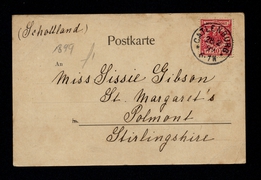 (Schottland)
Postkarte
1899
An
Miss Sissie Gibson
St. Margaret's
Polmont
Stirlingshire